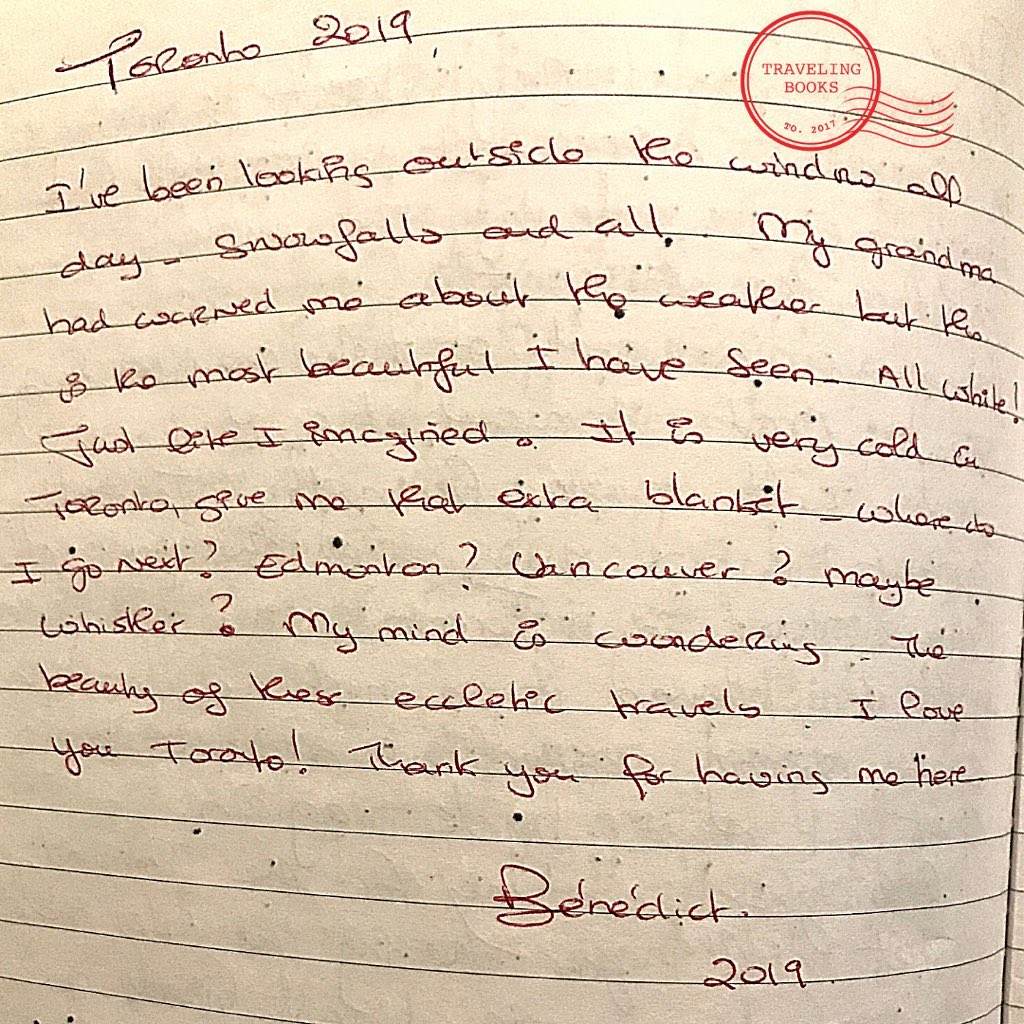 Toronto 2019
TRAVELING
BOOKS
TO. 2017
I've been looking outside the window all
day - snowfalls and all. My grandma
had warned me about the weather but the
is the most beautiful I have seen - All white!
Just like I imagined. It is very cold in
Toronto, give me that extra blanket - where do
I go next? Edmonton? Vancouver? maybe
Whistler? My mind is wondering - The
beauty of these eccletic travels I love
you Toroto! Thank you for having me here
Bénédict.
2019